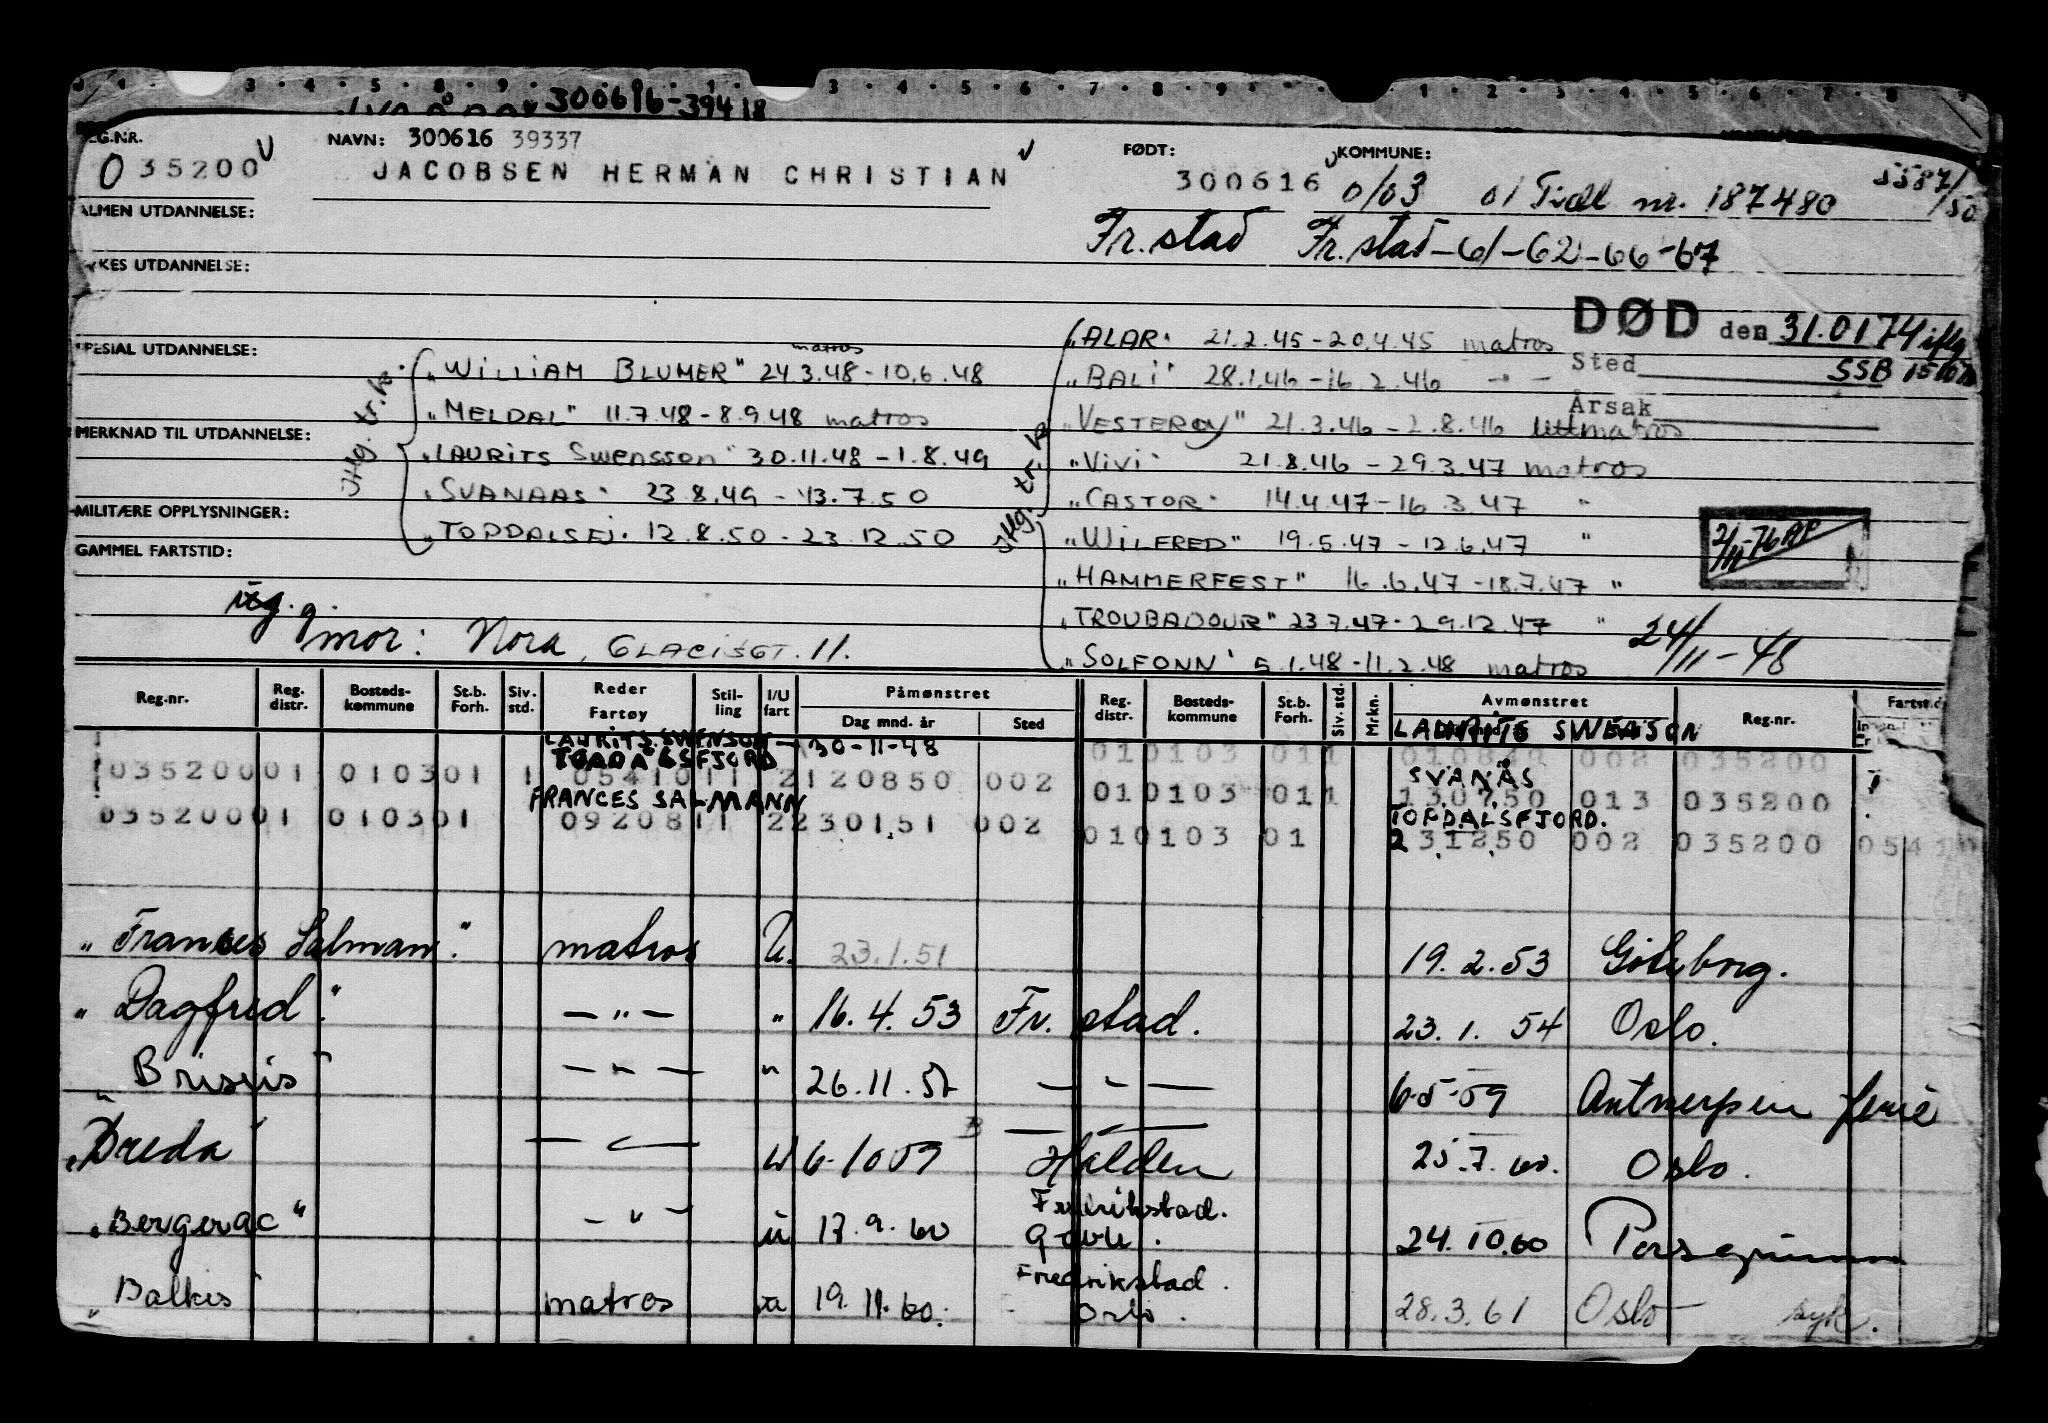 300616-39418
REG.NR. NAVN: 300616 39337 FØDT: KOMMUNE:
035200 JACOBSEN HERMAN CHRISTIAN 300616 0103 01 Tidl nr. 187480 5587/50
ALMEN UTDANNELSE: Fr.stad Fr.stad-61-62-66-67
YRKES UTDANNELSE:
DØD den 31.0174 iflg
Sted SSB
Årsak
SPESIAL UTDANNELSE:
MERKNAD TIL UTDANNELSE:
MILITÆRE OPPLYSNINGER:
GAMMEL FARTSTID:
Iflg. tr.k.
matros
"WILLIAM BLUMER" 24.3.48-10.6.48
"MELDAL" 11.7.48-8.9.48 matros
"LAURITS Swensson" 30.11.48-1.8.49
"SVANAAS" 23.8.49-13.7.50
"TOPDALSFJ. 12.8.50-23.12.50
Iflg. tr.k.
"ALAR" 21.2.45-20.4.45 matros
"BALI" 28.1.46-16.2.46 - " -
"VESTERØY" 21.3.46-2.8.46 matros
"VIVI" 21.8.46-29.3.47 matros
"CASTOR" 14.4.47-16.3.47 "
"WILFRED" 19.5.47-12.6.47 "
"HAMMERFEST" 16.6.47-18.7.47 "
"TROUBADOUR" 23.7.47-29.12.47 "
"SOLFONN" 5.1.48-11.2.48 matros
2/11-76
24/11-48
mor: Nora, GLACISGT. 11.
Reg.nr. Reg. distr. Bosteds-kommune St.b. Forh. Siv. std. Reder Fartøy Stil-ling I/U fart Påmønstret Dag mnd. år Sted Reg. distr. Bosteds-kommune St.b. Forh. Siv. std. Mrkn. Avmønstret Reg.nr. Fartst.
LAURITS SWENSON 30-11-48 010103 011 LAURITS SWENSON 010849 002 035200
TOPDALSFJORD
03520001 010301 1 0541011 2 120850 002 010103 011 SVANÅS 130750 013 035200
FRANCES SALMANN
03520001 010301 0920811 2 230151 002 010103 01 TOPDALSFJORD. 231250 002 035200
"Frances Salman" matros U. 23.1.51 19.2.53 Göteborg.
"Dagfred" - " - " 16.4.53 Fr.stad. 23.1.54 Oslo.
"Briseis" - " - " 26.11.57 - " - 6-5-59 Antwerpen ferie
"Breda" - " - U 6-10 59 Halden 25.7.60. Oslo.
Fredrikstad.
"Bergerac" - " - U 17.9.60 Gävle. 24.10.60 Porsgrunn
Fredrikstad.
"Balkis" matros U 19.11.60. Oslo. 28.3.61 Oslo syk.